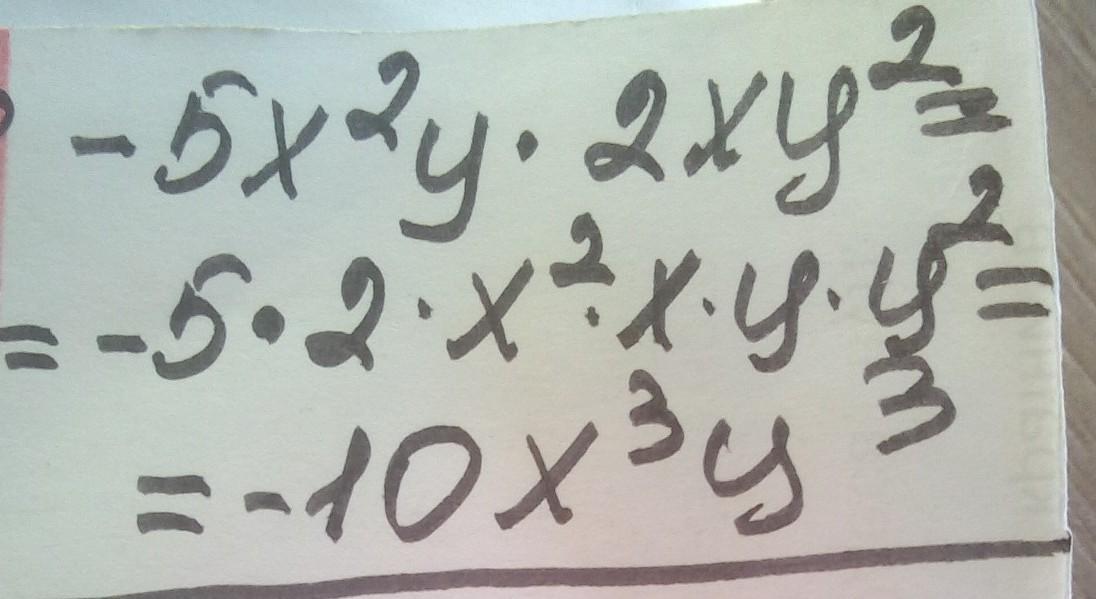 -5x²y · 2xy² =
= -5 · 2 · x² · x · y · y² =
= -10x³y³